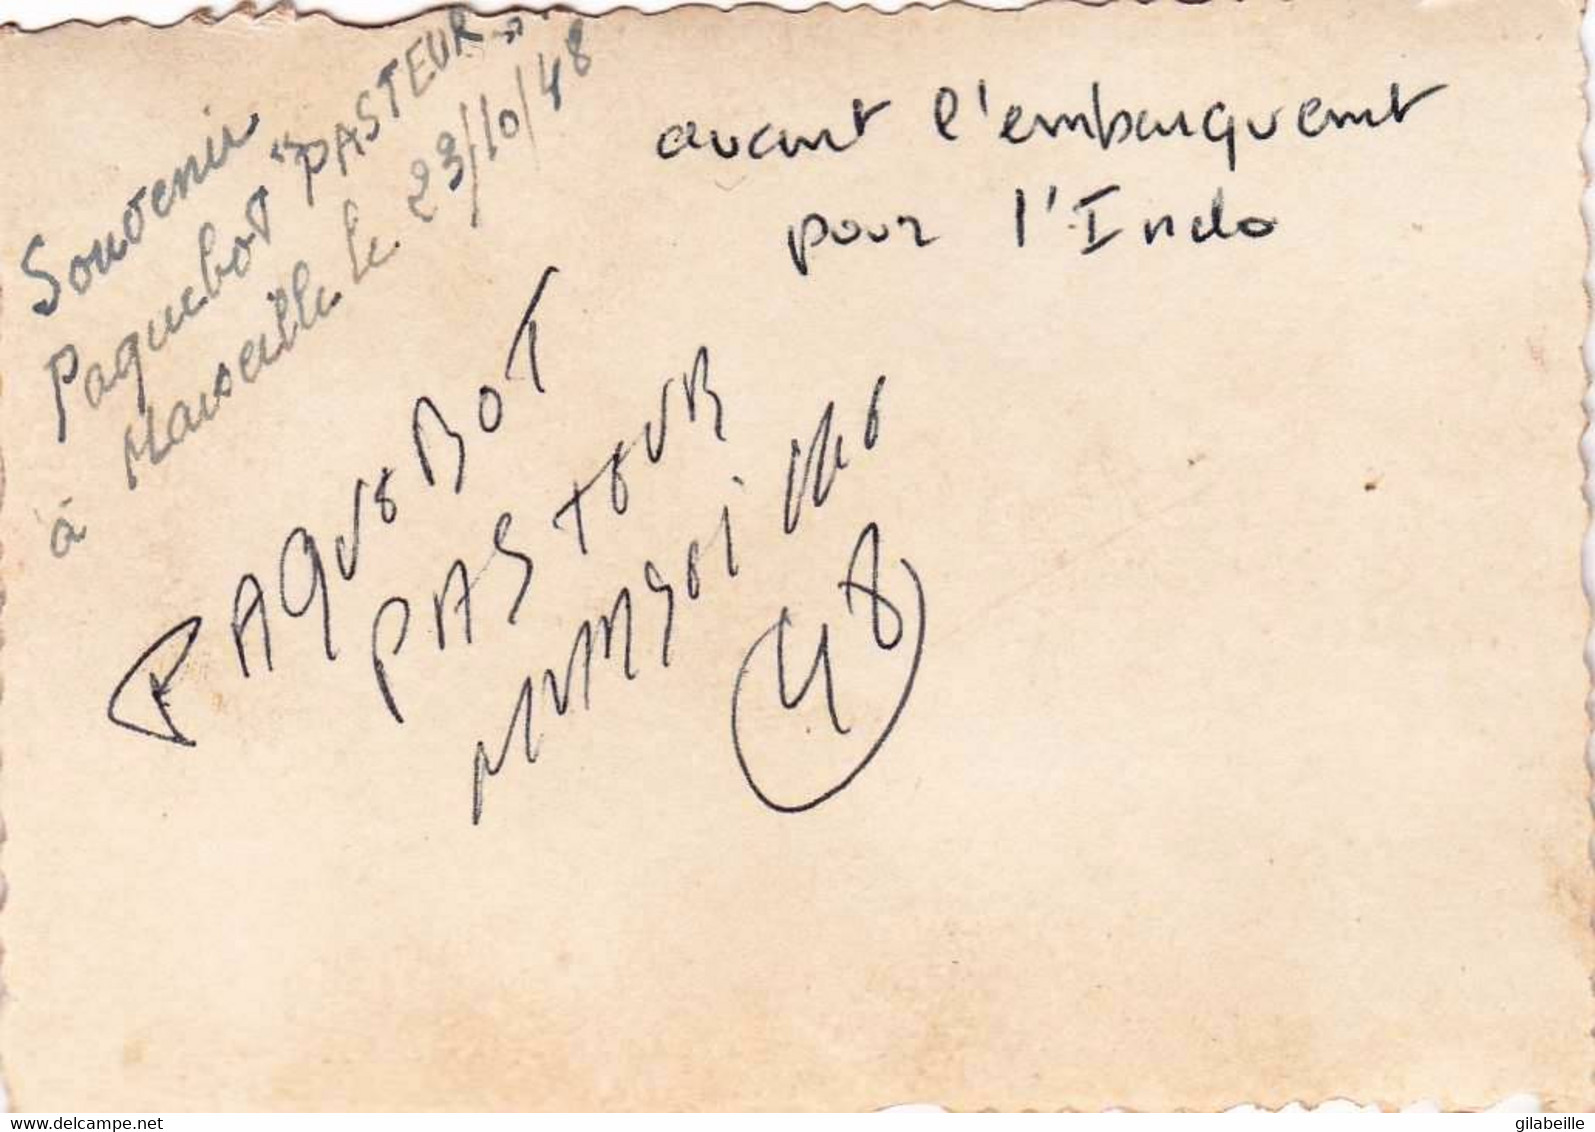 Souvenir
Paquebot "PASTEUR"
à Marseille le 23/10/48
avant l'embarquemt
pour l'Indo
PAQUEBOT
PASTEUR
MARSEILLE
48
delcampe.net
gilabeille